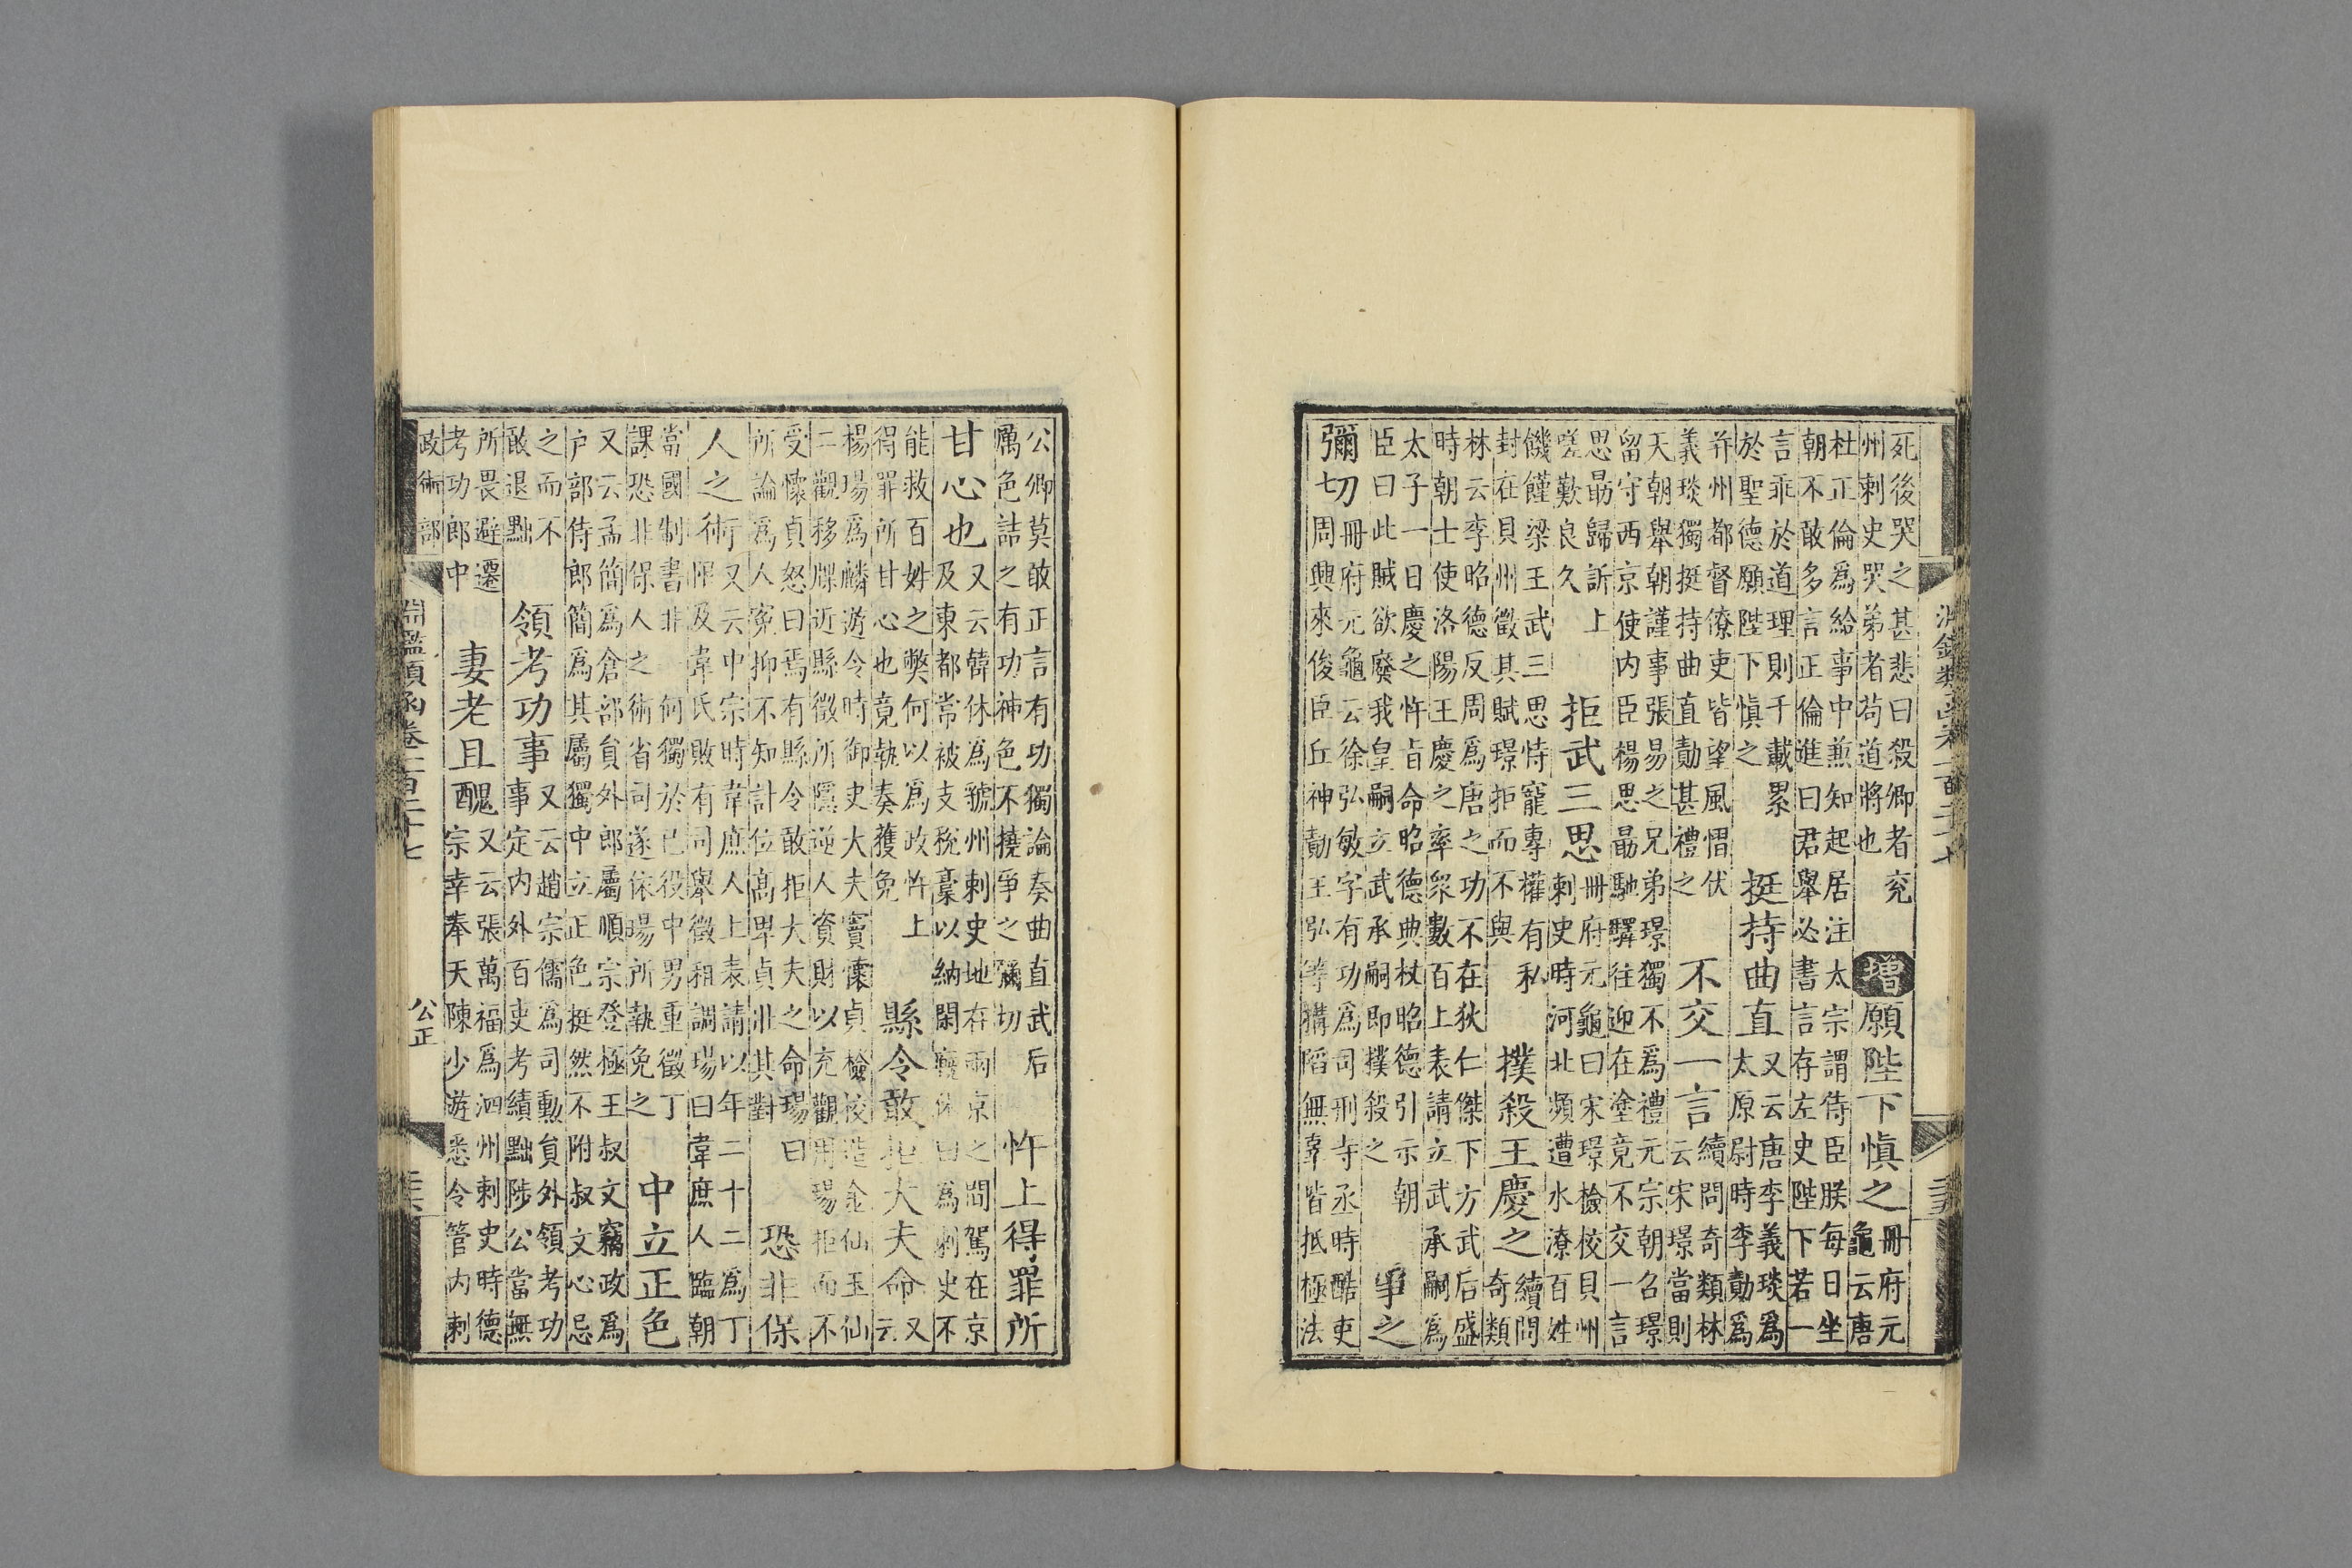 死後哭之甚悲曰殺卿者兖
州刺史哭弟者苟道將也
增願陛下慎之
冊府元
龜云唐
杜正倫爲給事中兼知起居注太宗謂侍臣朕每日坐
朝不敢多言正倫進曰君舉必書言存左史陛下若一
言乖於道理則千載累
於聖德願陛下慎之
挺持曲直
又云唐李義琰爲
太原尉時李勣爲
并州都督僚吏皆望風慴伏
義琰獨挺持曲直勣甚禮之
不交一言
續問奇類林
云宋璟當則
天朝舉朝謹事張易之兄弟璟獨不爲禮元宗朝召璟
留守西京使内臣楊思勗馳驛往迎在塗竟不交一言
思勗歸訴上
嗟歎良久
拒武三思
冊府元龜曰宋璟檢校貝州
刺史時河北頻遭水潦百姓
饑饉梁王武三思恃寵專權有私
封在貝州徵其賦璟拒而不與
撲殺王慶之
續問
奇類
林云李昭德反周爲唐之功不在狄仁傑下方武后盛
時朝士使洛陽王慶之率衆數百上表請立武承嗣爲
太子一日慶之忤旨命昭德典杖昭德引示朝
臣曰此賊欲廢我皇嗣立武承嗣即撲殺之
爭之
彌切
冊府元龜云徐弘敏字有功爲司刑寺丞時酷吏
周興來俊臣丘神勣王弘等搆䧟無辜皆抵極法
公卿莫敢正言有功獨論奏曲直武后
厲色詰之有功神色不撓爭之彌切
忤上得罪所
甘心也
又云韓休爲虢州刺史地在兩京之間駕在京
及東都常被支稅藁以納閑廐休曰爲刺史不
能救百姓之弊何以爲政忤上
得罪所甘心也竟執奏獲免
縣令敢拒大夫命
又
云
楊瑒爲麟遊令時御史大夫竇懷貞檢校造金仙玉仙
二觀移牒近縣徵所隱逆人資財以充觀用瑒拒而不
受懷貞怒曰焉有縣令敢拒大夫之命瑒曰
所論爲人寃抑不知計位高卑貞壯其對
恐非保
人之術
又云中宗時韋庶人上表請以年二十二爲丁
限及韋氏敗有司舉徵租調瑒曰韋庶人臨朝
當國制書非一何獨於已役中男重徵丁
課恐非保人之術省司遂依瑒所執免之
中立正色
又云孟簡爲倉部負外郎屬順宗登極王叔文竊政爲
户部侍郎簡爲其屬獨中立正色挺然不附叔文心忌
之而不
敢退黜
領考功事
又云趙宗儒爲司勳負外領考功
事定内外百吏考績黜陟公當無
所畏避遷
考功郎中
妻老且醜
又云張萬福爲泗州刺史時德
宗幸奉天陳少遊悉令管内刺
政術部
淵鑑類函卷一百二十七
公正